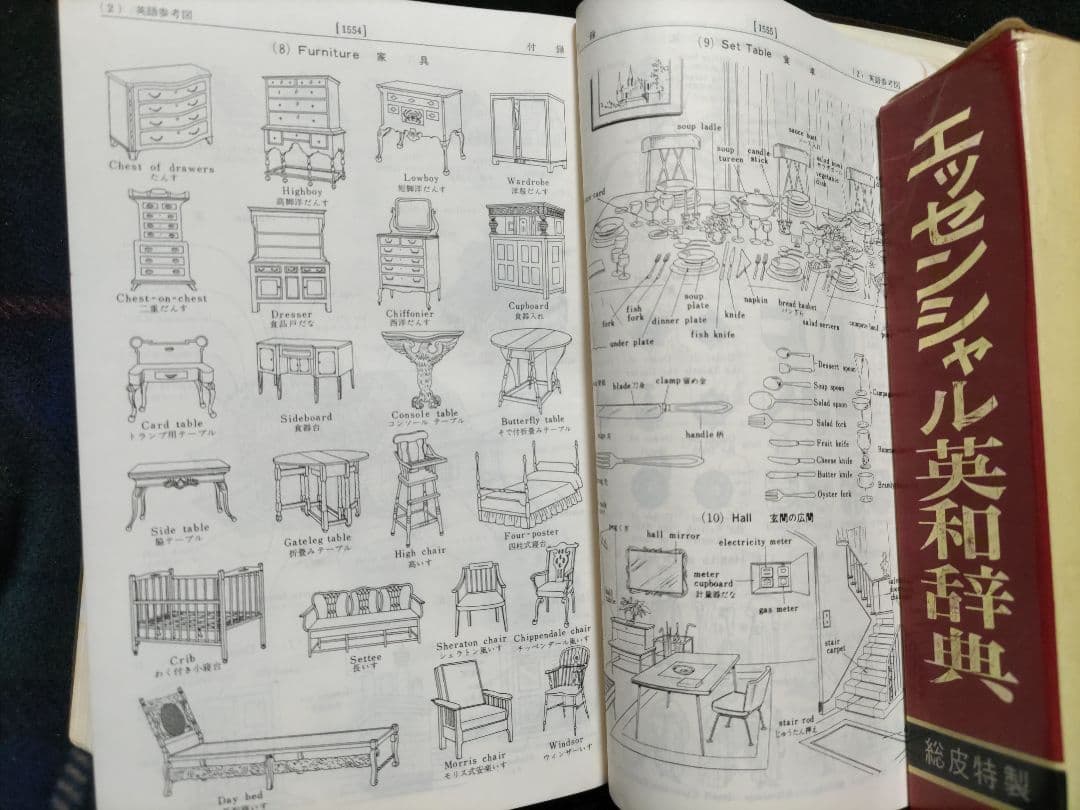 (2) 英語参考図
[1554]
付 録
(8) Furniture 家 具
Chest of drawers
たんす
Highboy
高脚洋だんす
Lowboy
短脚洋だんす
Wardrobe
洋服だんす
Chest-on-chest
二重だんす
Dresser
食品戸だな
Chiffonier
西洋だんす
Cupboard
食器入れ
Card table
トランプ用テーブル
Sideboard
食器台
Console table
コンソール テーブル
Butterfly table
そで付折畳みテーブル
Side table
脇テーブル
Gateleg table
折畳みテーブル
High chair
高いす
Four-poster
四柱式寝台
Crib
わく付き小寝台
Settee
長いす
Sheraton chair
シェラトン風いす
Chippendale chair
チッペンデール風いす
Day bed
Morris chair
モリス式安楽いす
Windsor
ウィンザーいす
録
[1555]
(2) 英語参考図
(9) Set Table 食 卓
soup ladle
soup
tureen
candle
stick
sauce boat
ソース入れ
salad bowl
vegetable
dish
card
fork
fish
fork
soup
plate
dinner plate
fish knife
knife
napkin
bread basket
パンざら
salad servers
under plate
blade 刀身
clamp 留め金
handle 柄
Dessert spoon
Soup spoon
Salad spoon
Salad fork
Fruit knife
Cheese knife
Butter knife
Oyster fork
(10) Hall 玄関の広間
hall mirror
electricity meter
meter
cupboard
計量器だな
gas meter
stair
carpet
stair rod
じゅうたん押え
エッセンシャル英和辞典
総皮特製